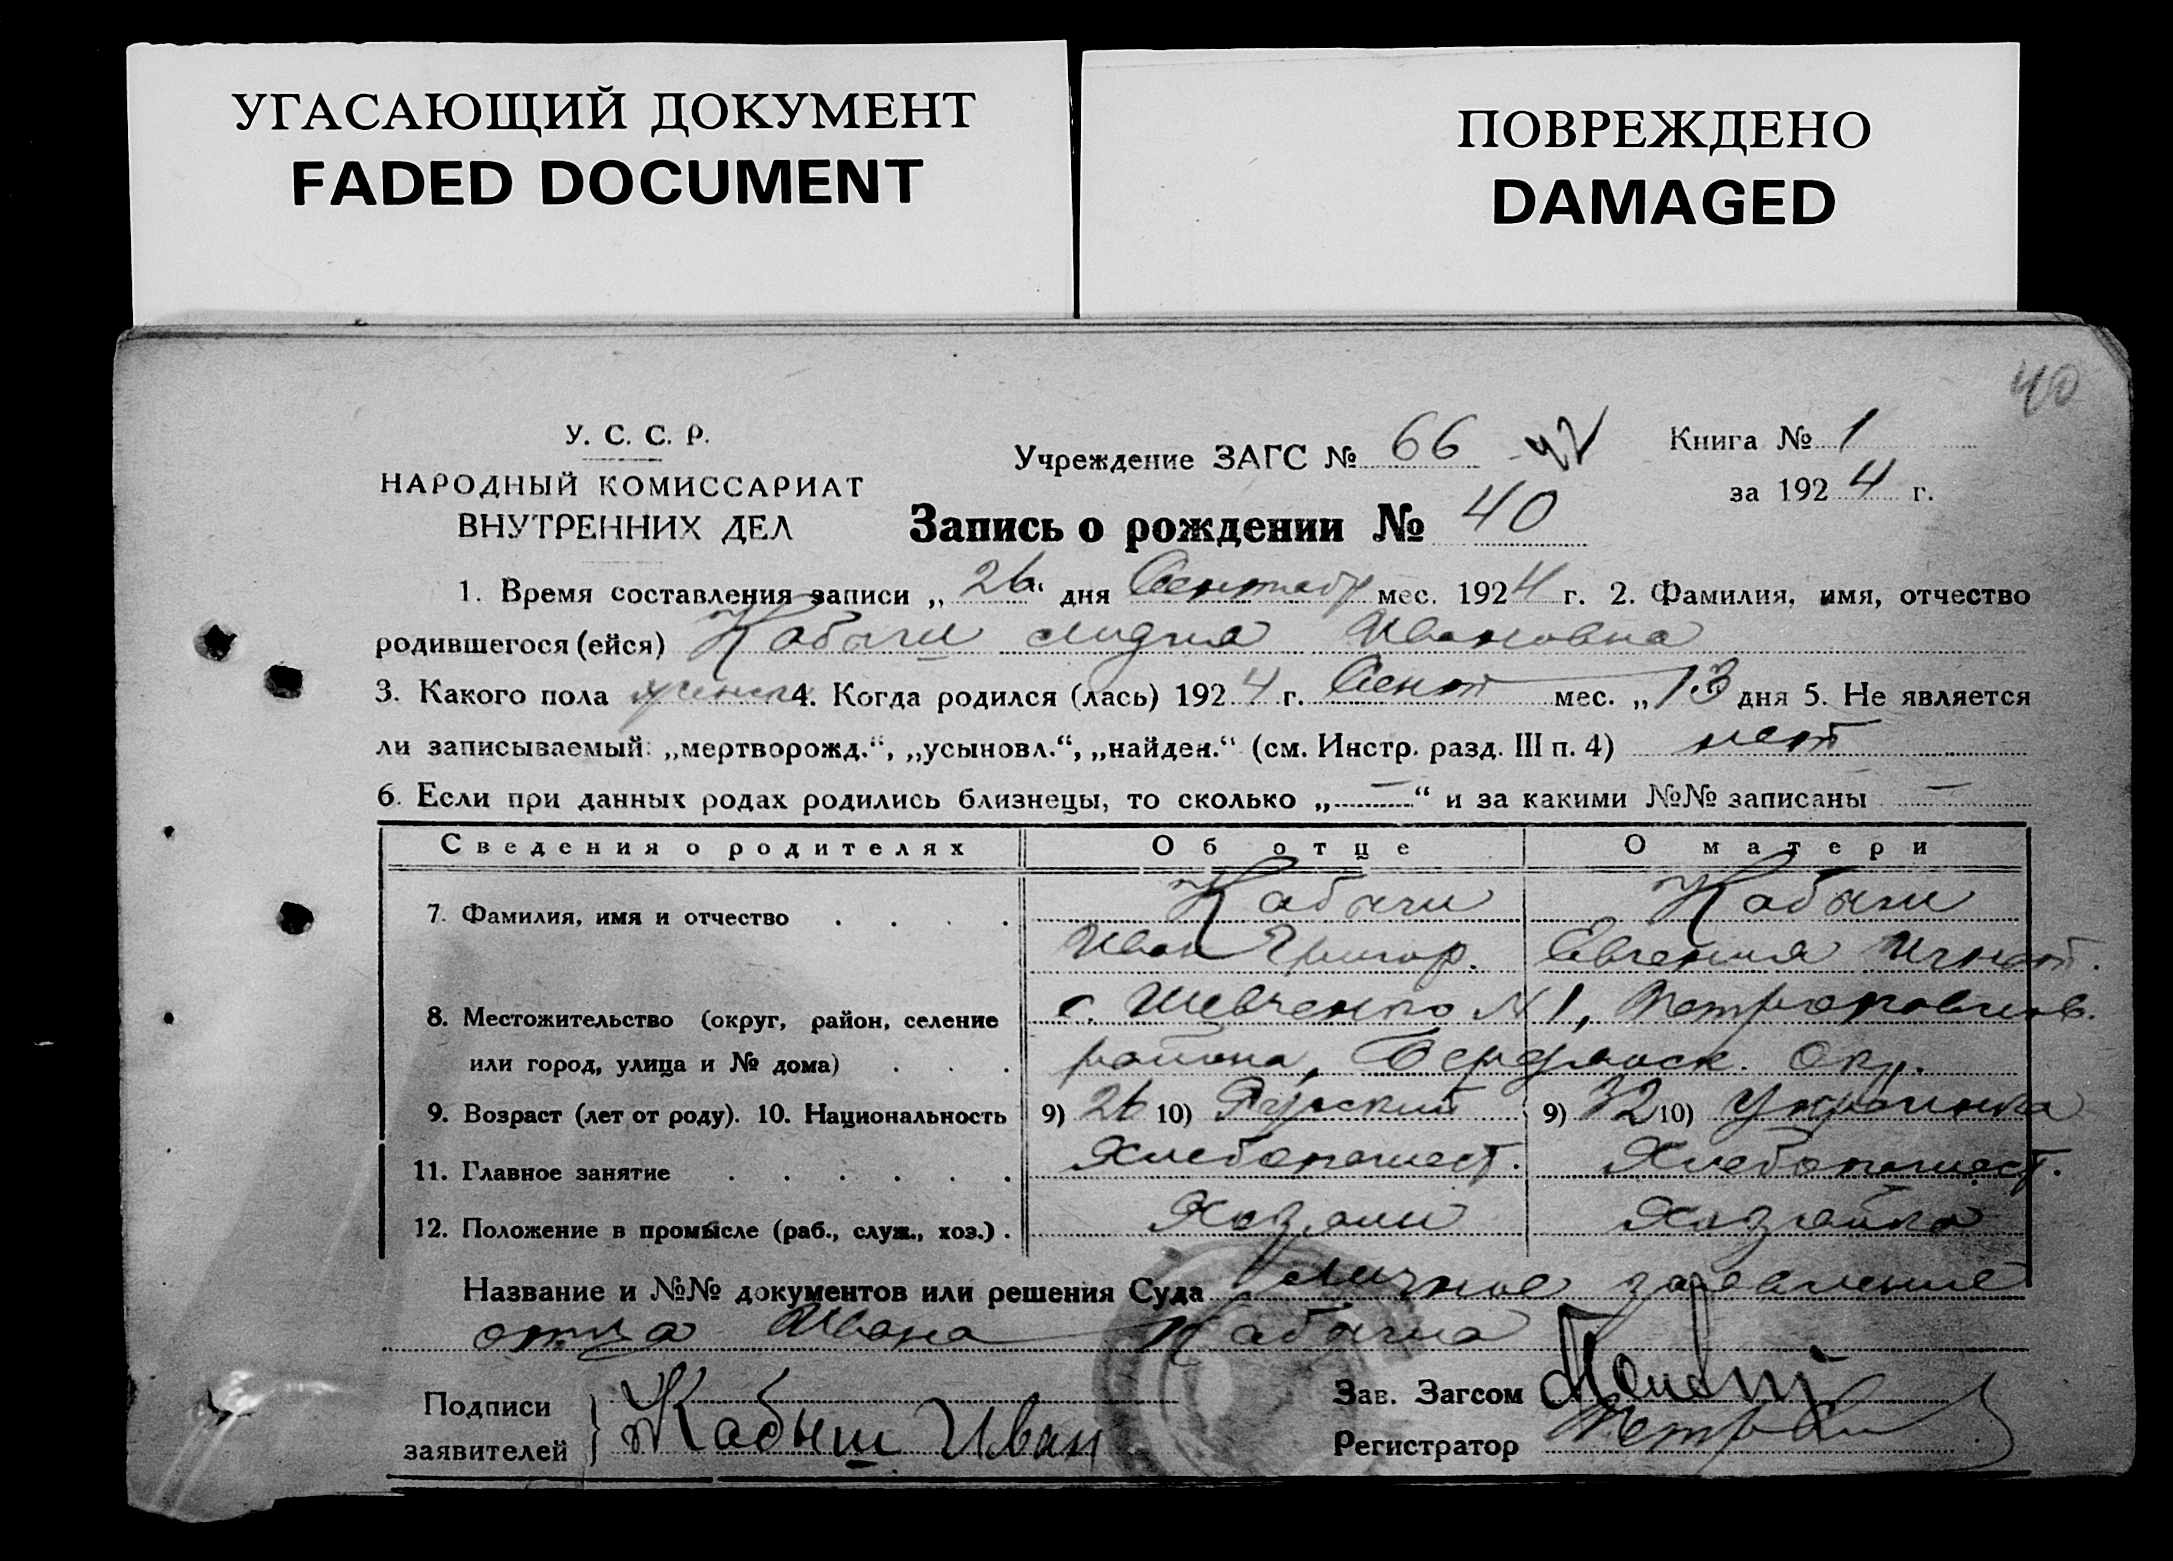 УГАСАЮЩИЙ ДОКУМЕНТ
FADED DOCUMENT
ПОВРЕЖДЕНО
DAMAGED
40
У. С. С. Р.
НАРОДНЫЙ КОМИССАРИАТ
ВНУТРЕННИХ ДЕЛ
Учреждение ЗАГС № 66
Книга № 1
за 1924 г.
Запись о рождении № 40
1. Время составления записи „26“ дня Сентябр мес. 1924 г. 2. Фамилия, имя, отчество
родившегося (ейся) Кабыш Лидия Ивановна
3. Какого пола женск 4. Когда родился (лась) 1924 г. Сент мес. „13 дня 5. Не является
ли записываемый: „мертворожд.“, „усыновл.“, „найден.“ (см. Инстр. разд. III п. 4) нет
6. Если при данных родах родились близнецы, то сколько „—“ и за какими №№ записаны —
Сведения о родителях Об отце О матери
7. Фамилия, имя и отчество . . . . Кабыш Кабыш
Иван Григор. Евгения Игнат.
8. Местожительство (округ, район, селение с. Шевченко N 1, Петропавлов.
или город, улица и № дома) . . . района, Бердянск. Окр.
9. Возраст (лет от роду). 10. Национальность 9) 26 10) Русский 9) 32 10) Украинка
11. Главное занятие . . . . . . Хлебопашест. Хлебопашест.
12. Положение в промысле (раб., служ., хоз.) . Хозяин Хозяйка
Название и №№ документов или решения Суда Личное заявление
отца Ивана Кабыша
Подписи
заявителей } Кабыш Иван
Зав. Загсом
Регистратор